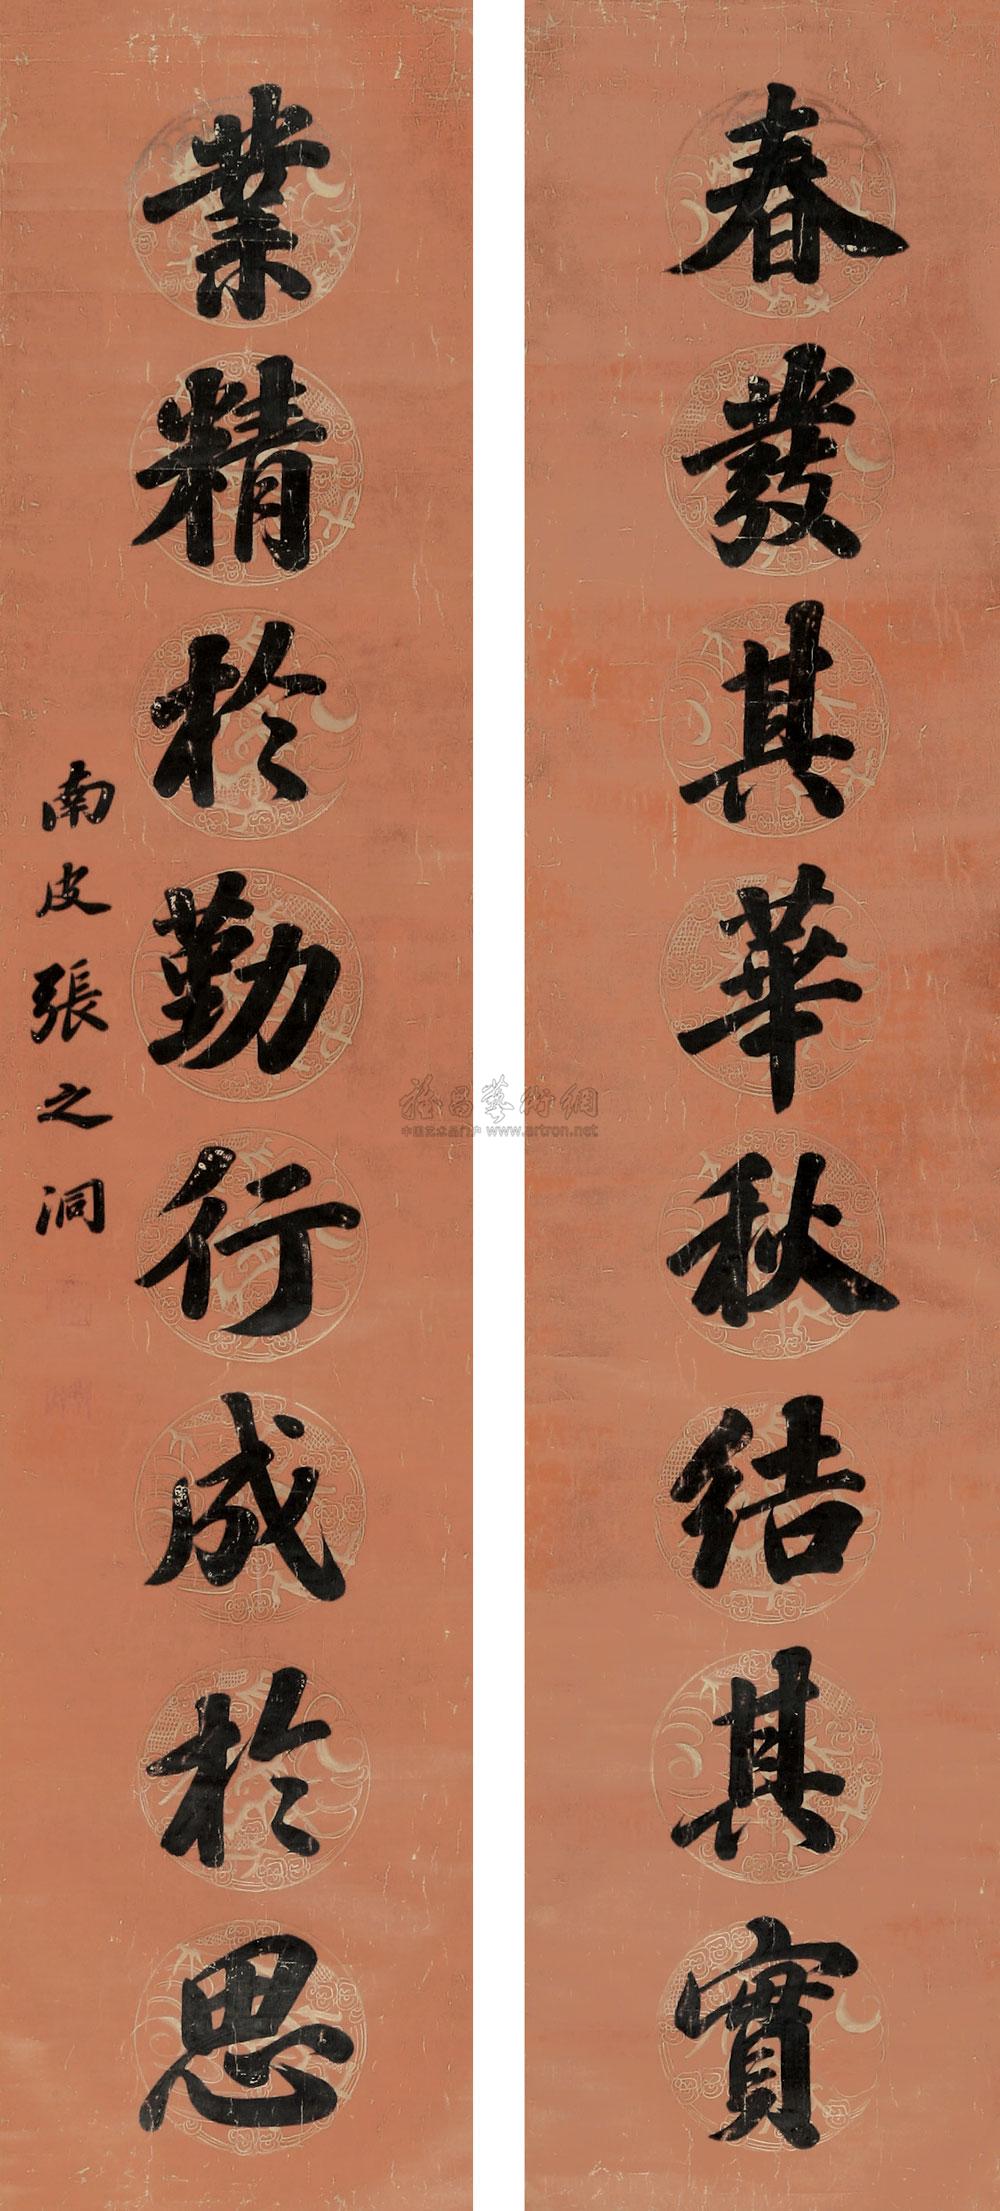 春發其華秋結其實
業精於勤行成於思
南皮張之洞
雅昌藝術網
中国艺术品门户 www.artron.net